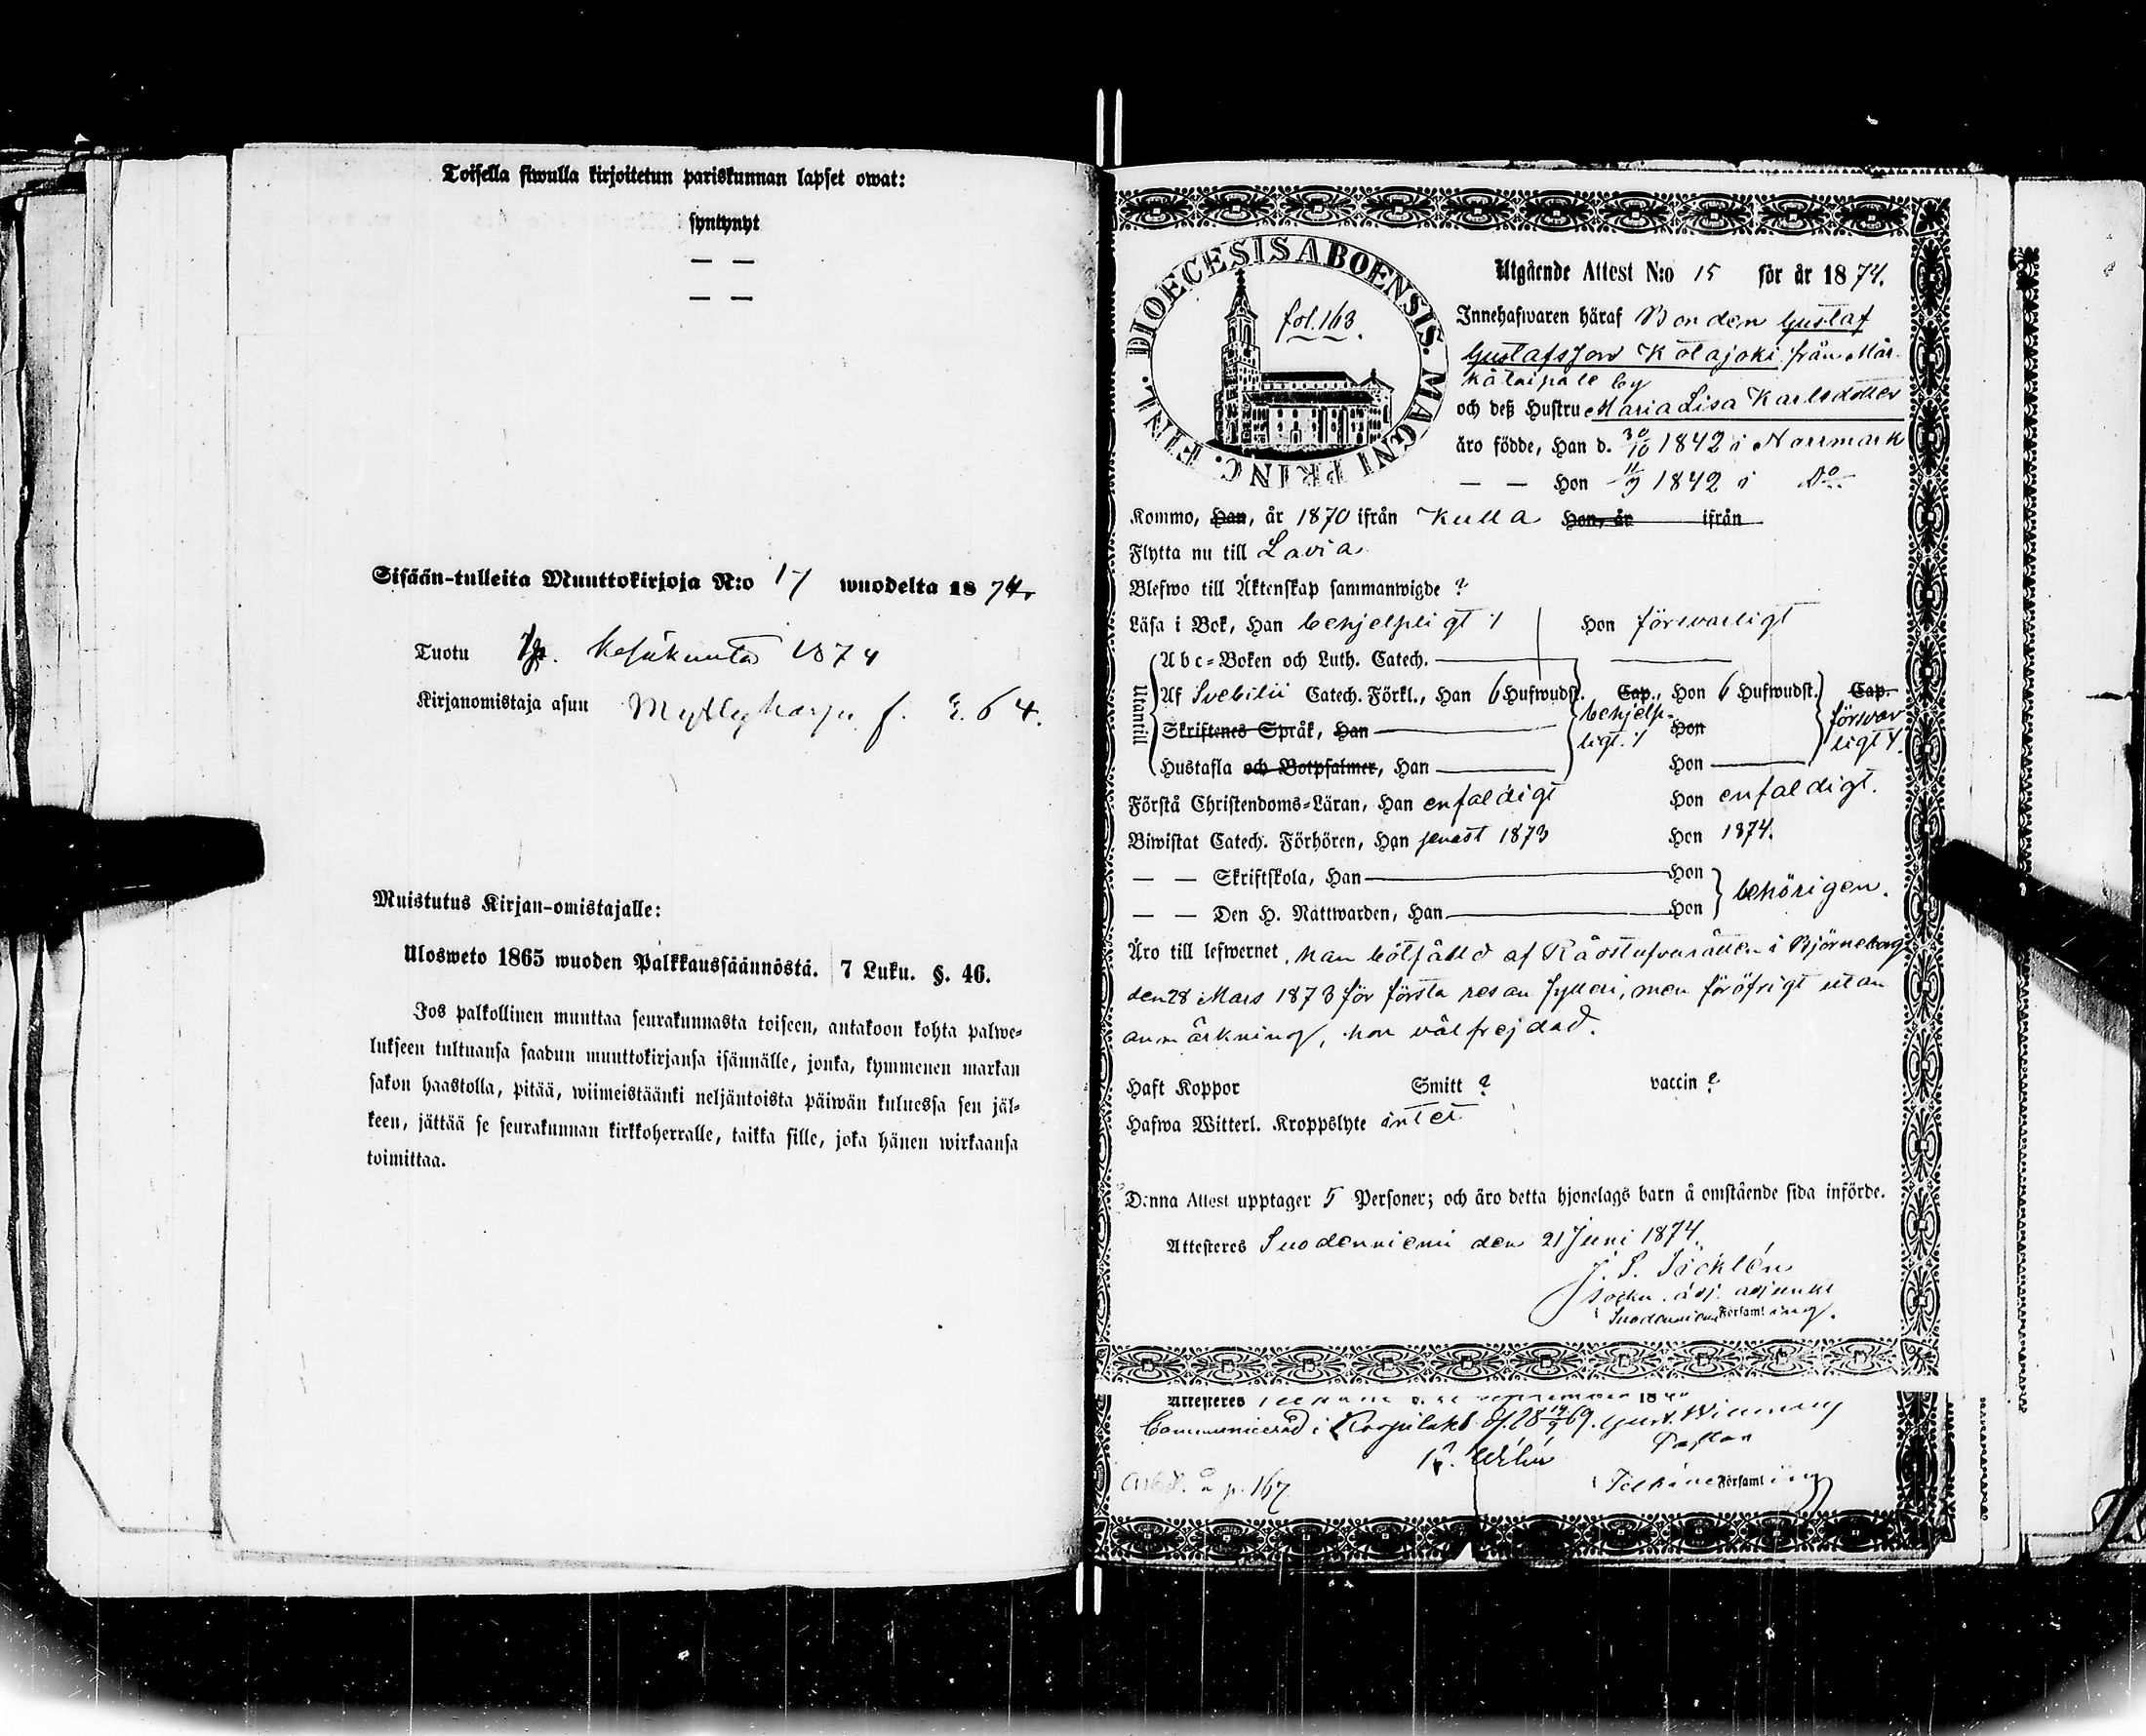 Toisella siwulla kirjoitetun pariskunnan lapset owat:
syntynyt
— —
— —
Sisään-tulleita Muuttokirjoja N:o 17 wuodelta 1874.
Tuotu kesäkuuta 1874
Kirjanomistaja asuu Myllyharju f. 64.
Muistutus Kirjan-omistajalle:
Ulosweto 1865 wuoden Palkkaussäännöstä. 7 Luku. §. 46.
Jos palkollinen muuttaa seurakunnasta toiseen, antakoon kohta palwe-
lukseen tultuansa saadun muuttokirjansa isännälle, jonka, kymmenen markan
sakon haastolla, pitää, wiimeistäänki neljäntoista päiwän kuluessa sen jäl-
keen, jättää se seurakunnan kirkkoherralle, taikka sille, joka hänen wirkaansa
toimittaa.
DIOECESIS ABOENSIS. MAGNI PRINC. FINL.
fol. 163.
Utgående Attest N:o 15 för år 1874.
Innehafwaren häraf Bonden Gustaf
Gustafsson Kolajoki från Mär-
by
och deß Hustru Maria Lisa Karlsdotter
äro födde, Han d. 30/10 1842 i Norrmark
— — Hon 11/9 1842 i Do
Kommo, Han, år 1870 ifrån Kulla Hon, år ifrån
Flytta nu till Lavia
Blefwo till Äktenskap sammanwigde ?
Läsa i Bok, Han behjelpligt / Hon försvarligt
Utantill
Abc-Boken och Luth. Catech.
Af Svebilii Catech. Förkl., Han 6 Hufwudst. Cap., Hon 6 Hufwudst. Cap.
behjelp-
ligt. /
försvar
ligt /.
Skriftenes Språk, Han Hon
Hustafla och Botpsalmer, Han Hon
Förstå Christendoms-Läran, Han enfaldigt Hon enfaldigt.
Biwistat Catech. Förhören, Han senast 1873 Hon 1874.
— — Skriftskola, Han Hon
behörigen.
— — Den H. Nattwarden, Han Hon
Äro till lefwernet, han bötfälld af Rådstufvurätten i Björneborg
den 28 Mars 1873 för första resan fylleri, men föröfrigt utan
anmärkning, hon välfrejdad.
Haft Koppor Smitt ? vaccin ?
Hafwa Witterl. Kroppslyte intet
Denna Attest upptager 5 Personer; och äro detta hjonelags barn å omstående sida införde.
Attesteres Suodenniemi den 21 Juni 1874.
J. S. Täcklén
sockn. adj. adjunkt
i Suodenniemi Församling.
Attesteres
Communicerad i
Pastor
p. 167
Församling